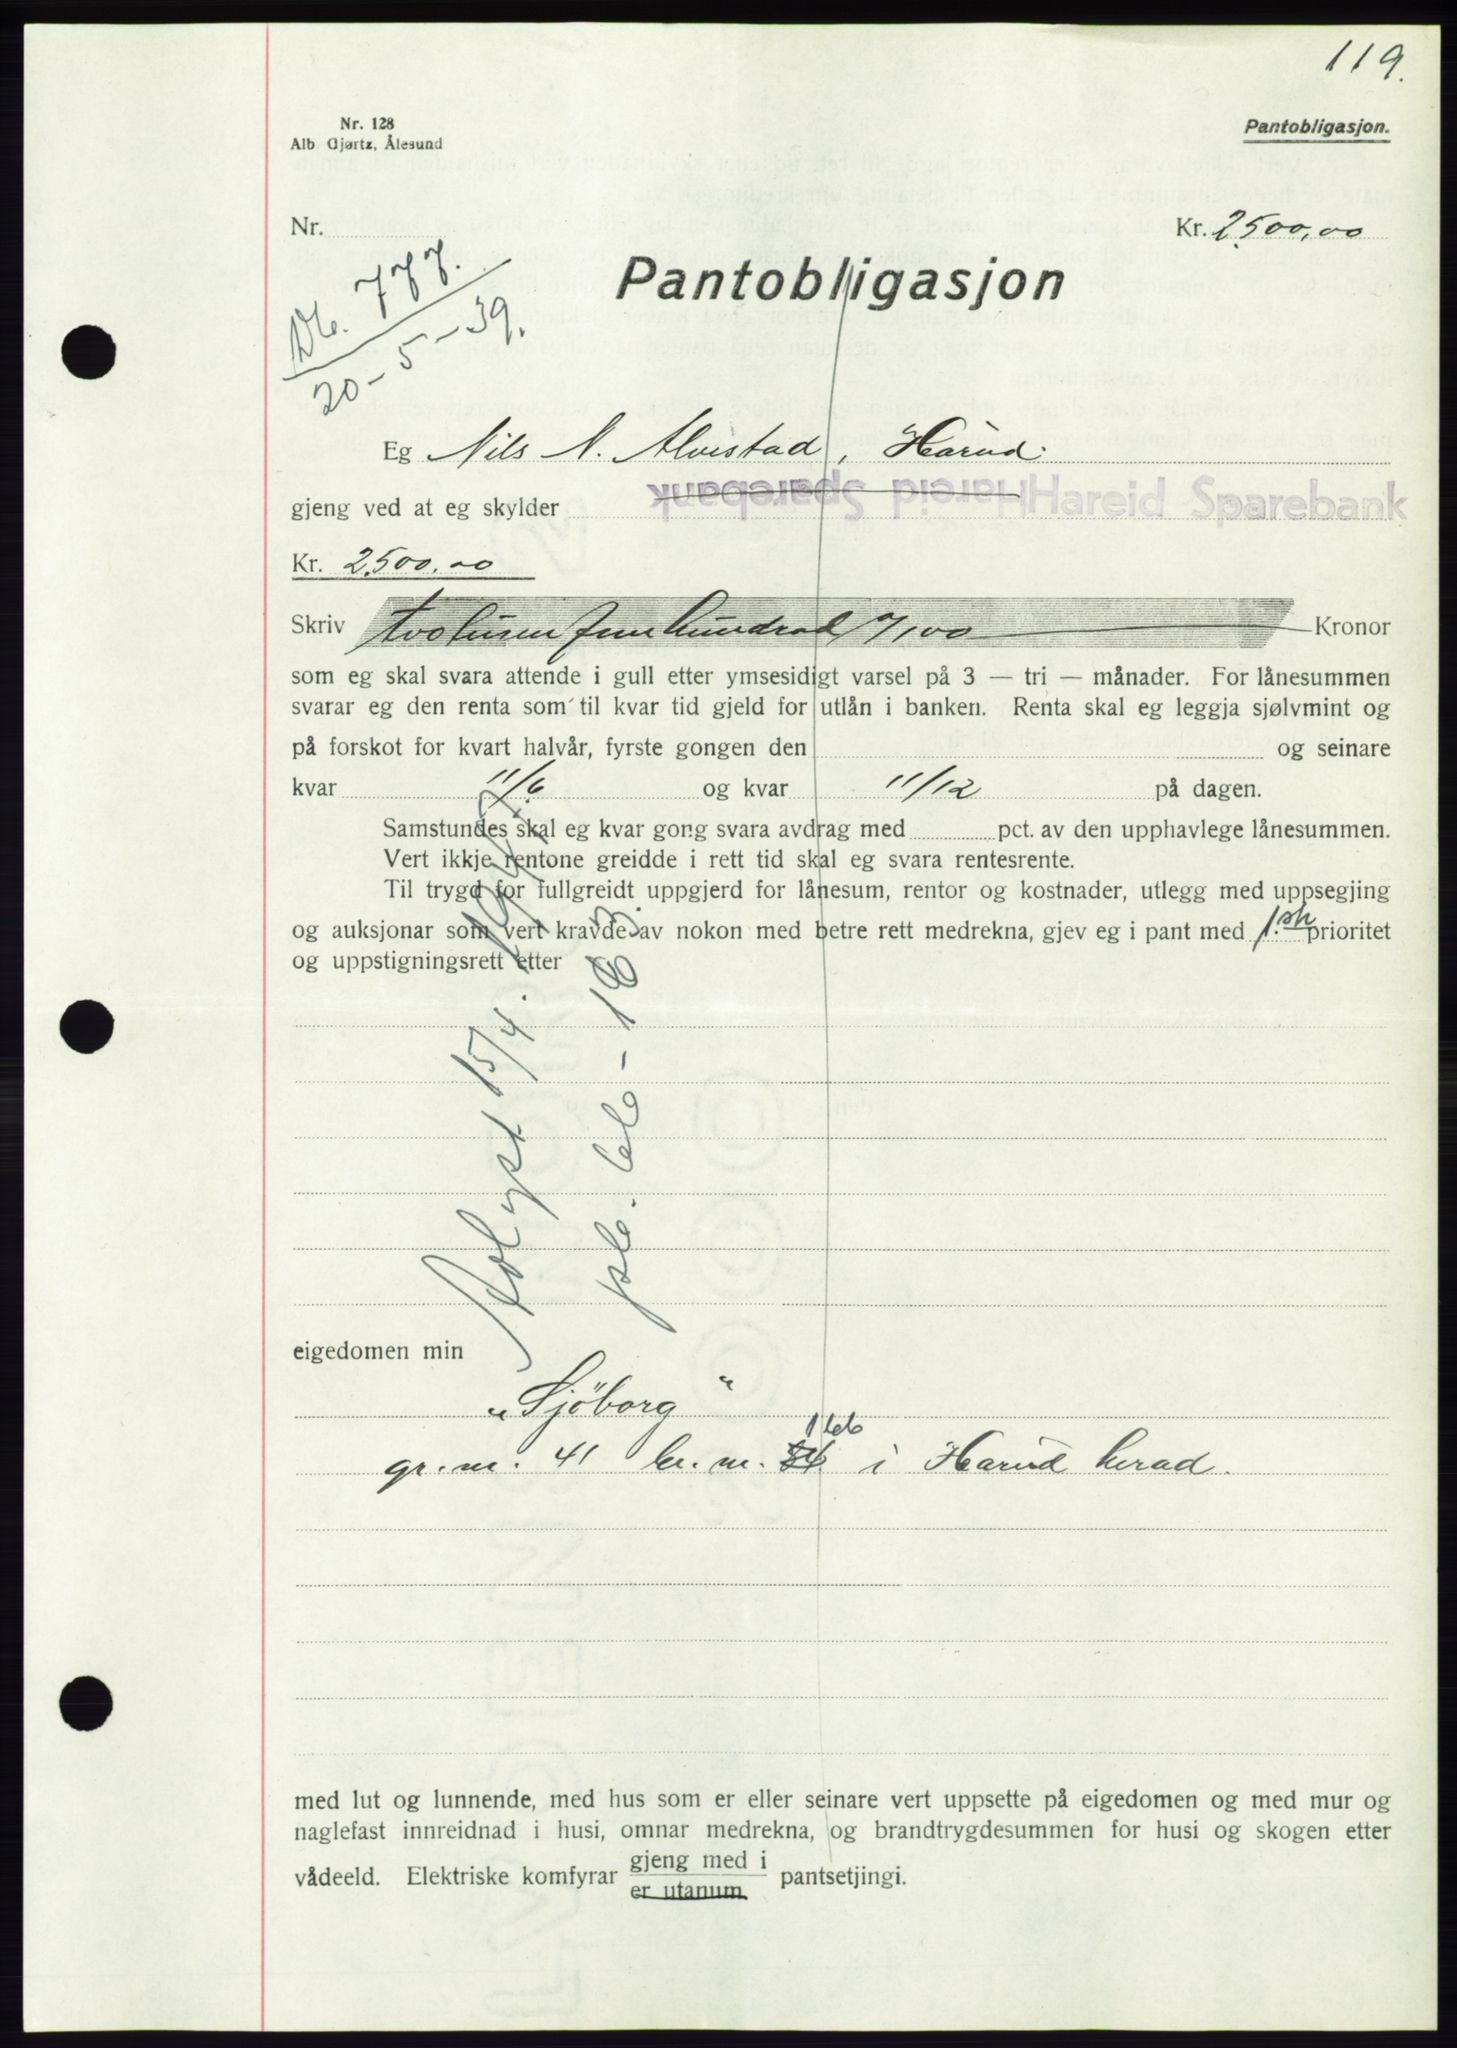 119.
Nr. 128
Alb. Gjørtz, Ålesund
Pantobligasjon.
Nr.
Kr. 2500,00
777.
20-5-39.
Pantobligasjon
Eg Nils N. Alvestad, Hareid.
gjeng ved at eg skylder Hareid Sparebank Hareid Sparebank
Kr. 2500,00
Skriv totusen fem hundrad /100 Kronor
som eg skal svara attende i gull etter ymsesidigt varsel på 3 — tri — månader. For lånesummen
svarar eg den renta som til kvar tid gjeld for utlån i banken. Renta skal eg leggja sjølvmint og
på forskot for kvart halvår, fyrste gongen den og seinare
kvar 11/6 og kvar 11/12 på dagen.
Samstundes skal eg kvar gong svara avdrag med pct. av den upphavlege lånesummen.
Vert ikkje rentone greidde i rett tid skal eg svara rentesrente.
Til trygd for fullgreidt uppgjerd for lånesum, rentor og kostnader, utlegg med uppsegjing
og auksjonar som vert kravde av nokon med betre rett medrekna, gjev eg i pant med 1.ste prioritet
og uppstigningsrett etter
Avlyst 15/4. 1947.
eigedomen min
"Sjöborg"
gr. nr. 41 br. nr. 166 i Hareid herad.
med lut og lunnende, med hus som er eller seinare vert uppsette på eigedomen og med mur og
naglefast innreidnad i husi, omnar medrekna, og brandtrygdesummen for husi og skogen etter
vådeeld. Elektriske komfyrar gjeng med i pantsetjingi.
er utanum